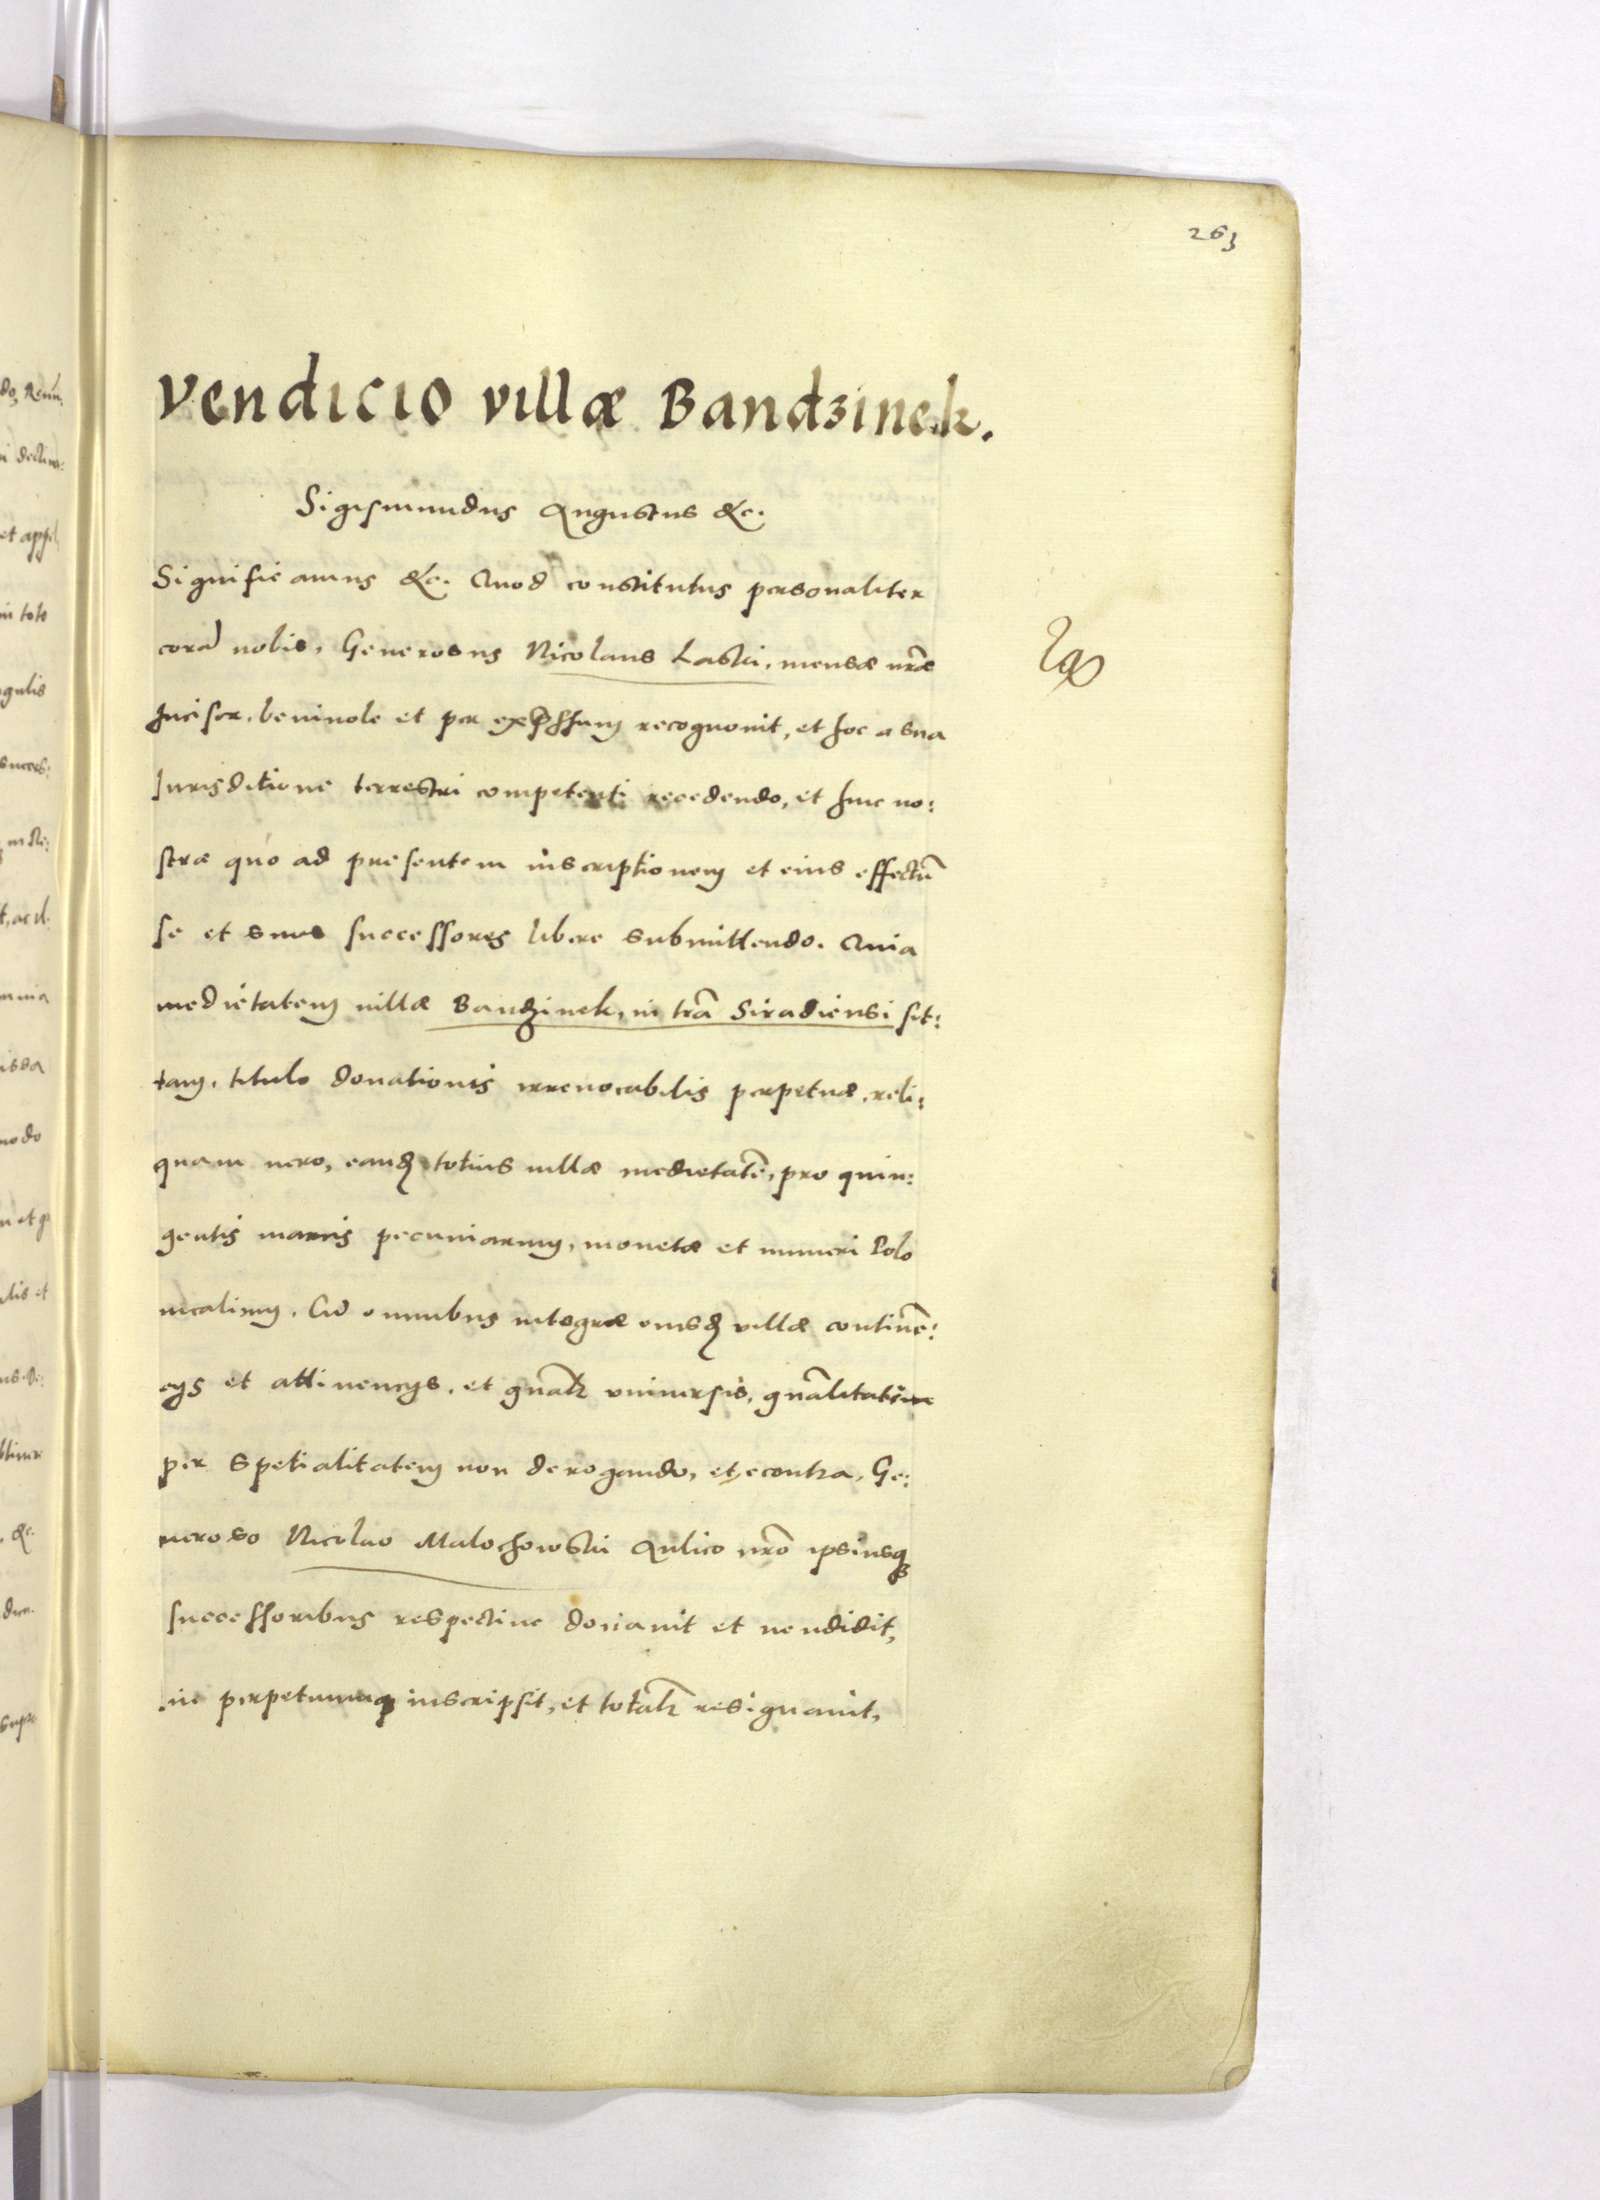 263
Vendicio villæ Bandzinek.
Sigismundus Augustus &c.
Significamus &c. Quod constitutus personaliter
corã nobis, Generosus Nicolaus Laski, mensæ nr̃æ
Incisor, beniuole et per exp̃ssum recognouit, et hoc a sua
Jurisditione terrestri competenti recedendo, et huic no:
stræ quo ad presentem inscriptionem et eius effectũ
se et suos successores libere submittendo. Quia
medietatem uillæ Bandzinek, in tr̃a Siradiensi sit:
tam, titulo donationis irreuocabilis perpetuæ, reli:
quam uero, eandẽ totius uillæ medietatẽ, pro quin:
gentis marcis pecuniarum, monetæ et numeri Polo
nicalium, Cũ omnibus integræ eiusdẽ villæ continẽ:
cijs et attinencijs, et gñalr̃ uniuersis, gñalitatem
per spetialitatem non derogando, et econtra, Ge:
neroso Nicolao Malochowski Aulico nr̃o ipsiusq;
successoribus respectiue donauit et uendidit,
in perpetuumq; inscripsit, et totalr̃ resignauit,